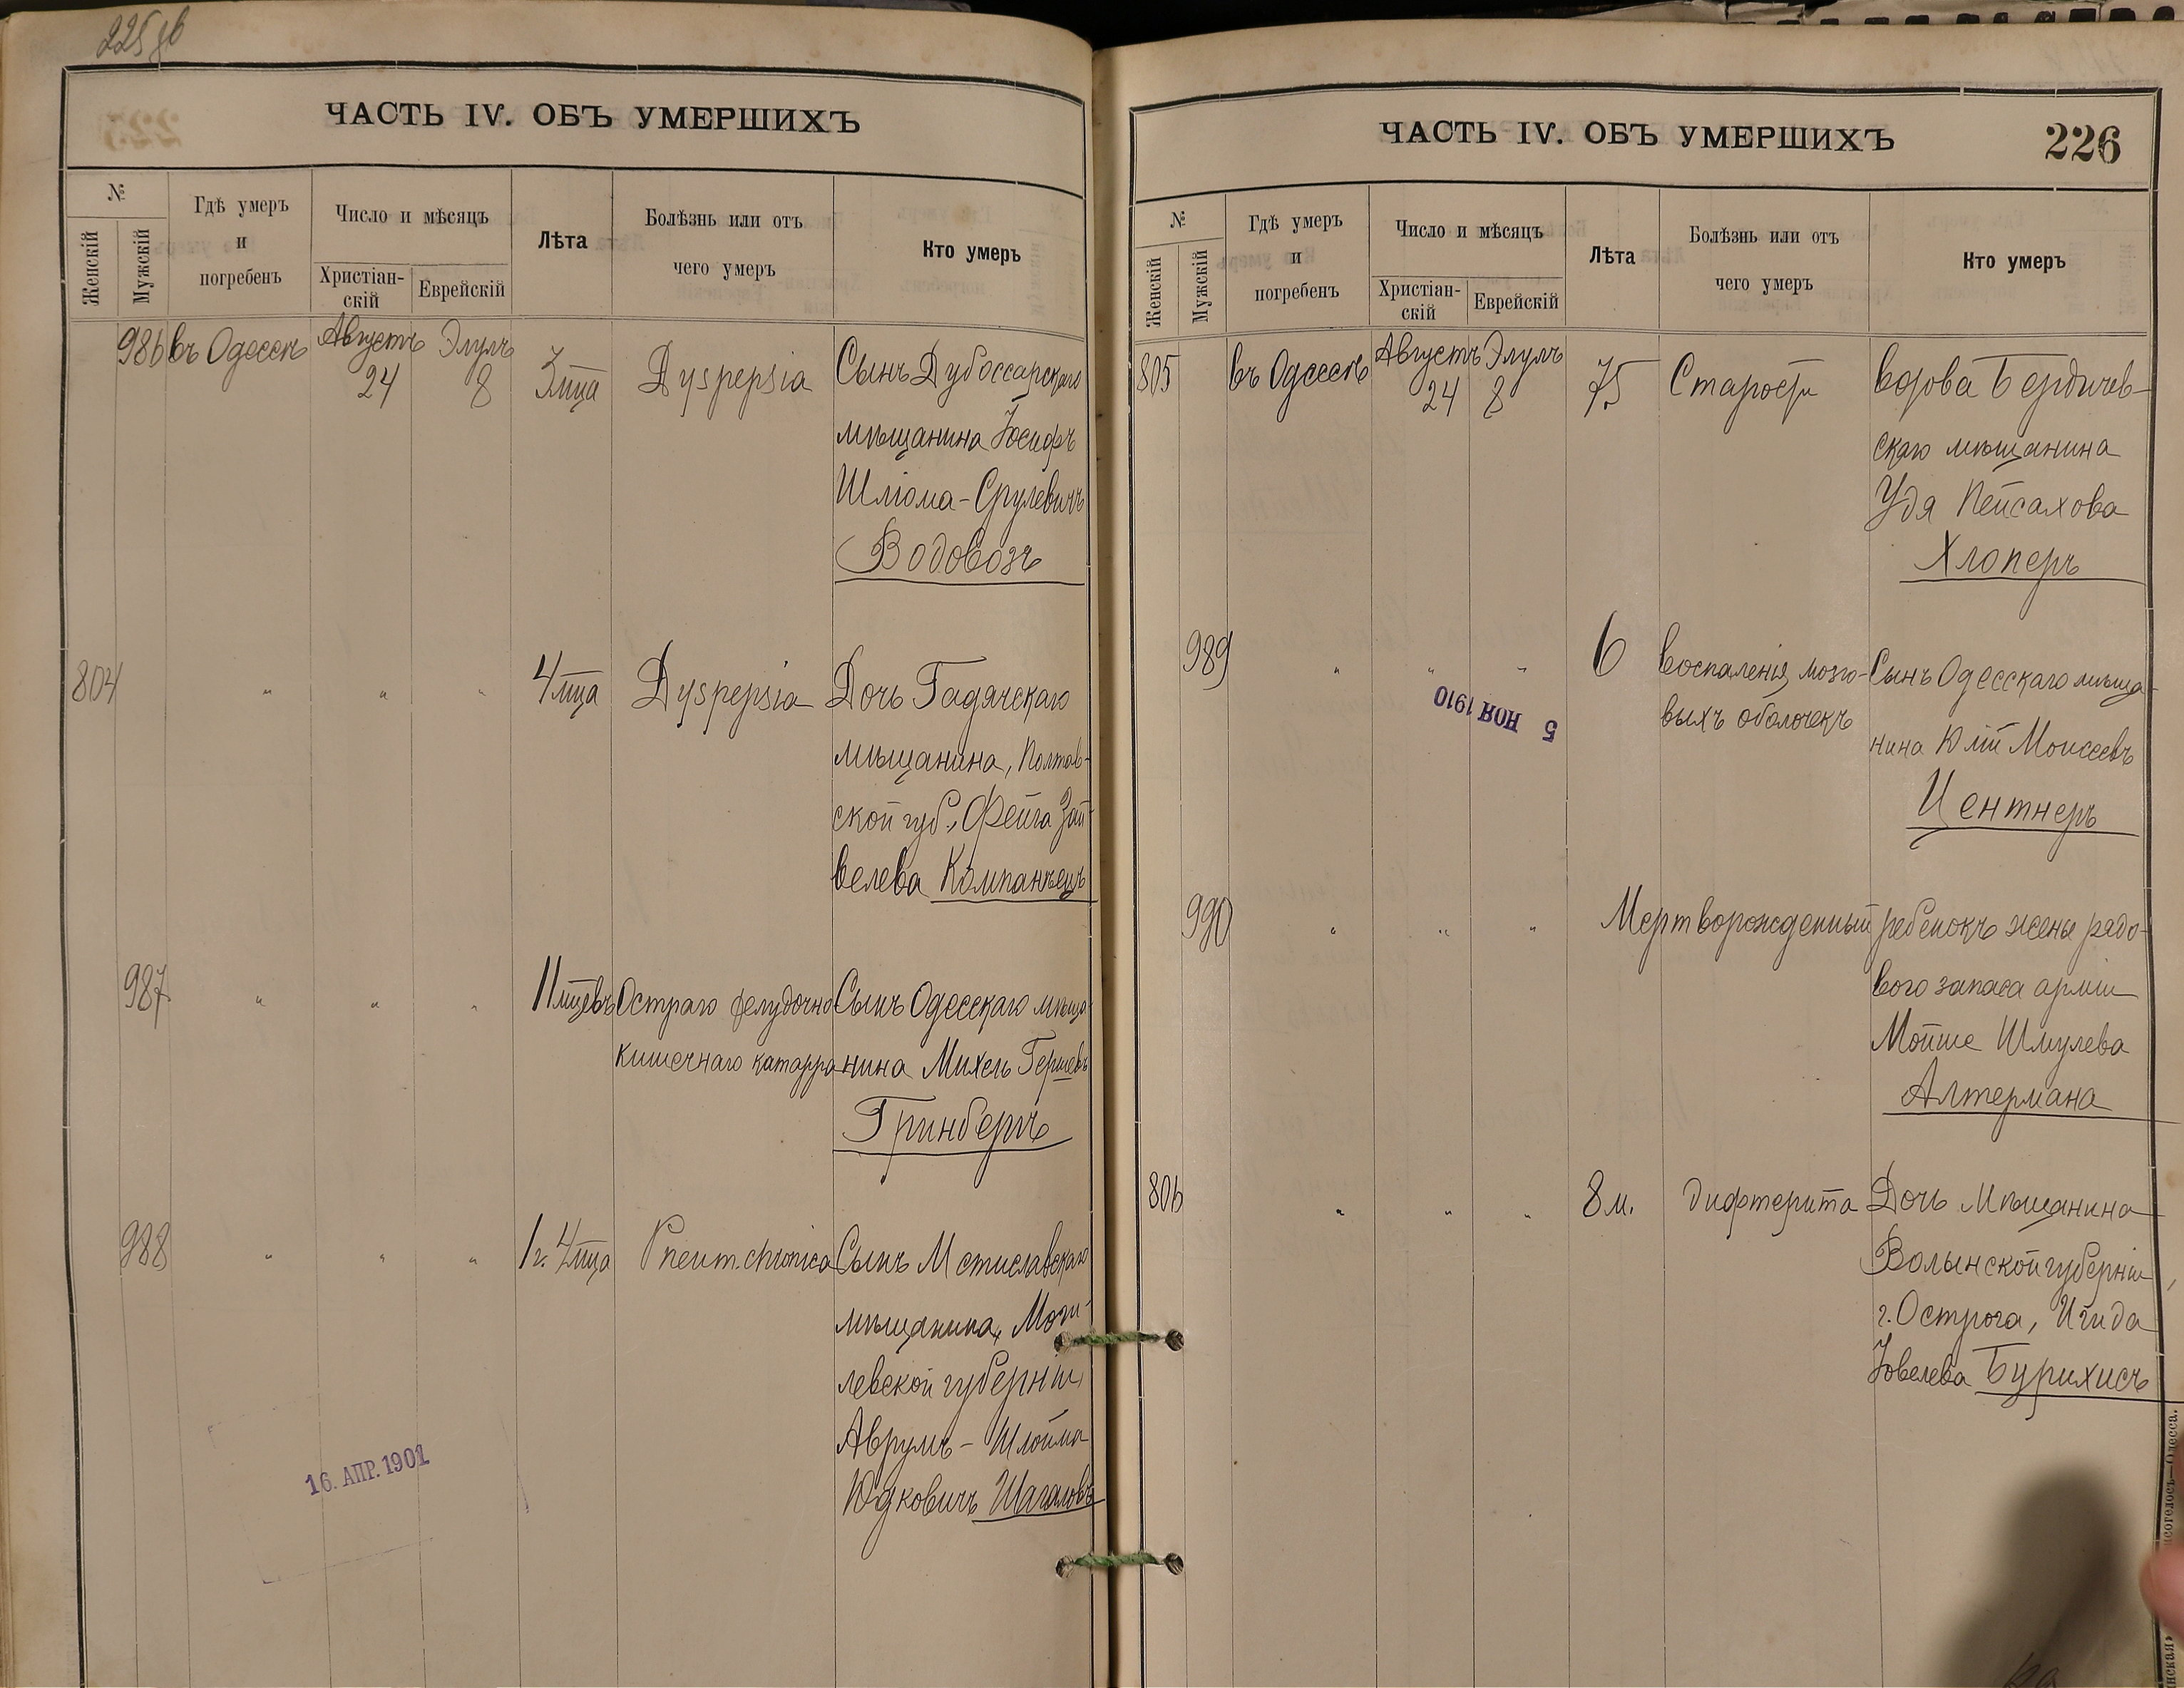 225 об
ЧАСТЬ IV. ОБЪ УМЕРШИХЪ
№
Женскій
Мужскій
Гдѣ умеръ
и
погребенъ
Число и мѣсяцъ
Христіан-
скій
Еврейскій
Лѣта
Болѣзнь или отъ
чего умеръ
Кто умеръ
986 въ Одессѣ Августъ 24 Элулъ 8 3 м̅ца Dyspepsia Сынъ Дубоссарскаго
мѣщанина Іосифъ
Шліома-Срулевичъ
Водовозъ
804 " " " 4 м̅ца Dyspepsia Дочь Гадячскаго
мѣщанина, Полтав-
ской губ., Фейга Зай-
велева Компанѣецъ
987 " " " 11 мцевъ Остраго желудочно Сынъ Одесскаго мѣща-
кишечнаго катарра нина Михель Гершевъ
Гринбергъ
988 " " " 1 г. 4 м̅ца Pneum. chronica Сынъ Мстиславскаго
мѣщанина, Моги-
левской губерніи,
Аврумъ-Шлойма
Юдковичъ Шагаловъ
16. АПР. 1901
ЧАСТЬ IV. ОБЪ УМЕРШИХЪ
226
№
Женскій
Мужскій
Гдѣ умеръ
и
погребенъ
Число и мѣсяцъ
Христіан-
скій
Еврейскій
Лѣта
Болѣзнь или отъ
чего умеръ
Кто умеръ
805 въ Одессѣ Августъ 24 Элулъ 8 75 Старости вдова Бердичев-
скаго мѣщанина
Удя Пейсахова
Хлоперъ
989 " " " 6 воспаленія мозго- Сынъ Одесскаго мѣща-
выхъ оболочекъ нина Юлій Моисеевъ
Центнеръ
5 НОЯ 1910
990 " " " Мертворожденный ребенокъ жены рядо-
вого запаса арміи
Мойше Шмулева
Алтермана
806 " " " 8 м. дифтерита Дочь мѣщанина
Волынской губерніи,
г. Острога,
Іовелева Бурихисъ